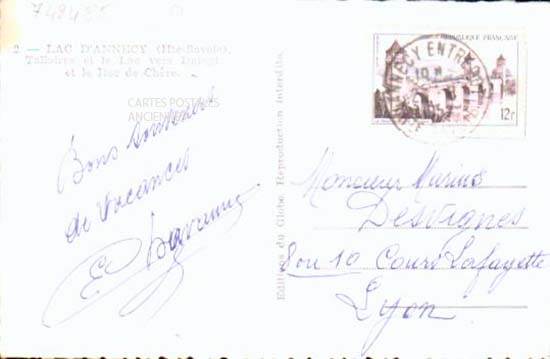 2 — LAC D'ANNECY (Hte-Savoie).
Talloires et le Lac vers Duingt
et le Roc de Chère.
CARTES POSTALES
ANCIENNES
Bons souvenirs
de Vacances
Editions du Globe. Reproduction Interdite.
REPUBLIQUE FRANÇAISE
12F
ANNECY ENTREPOT
Monsieur Marius
Desvignes
8 ou 10 Cours Lafayette
Lyon